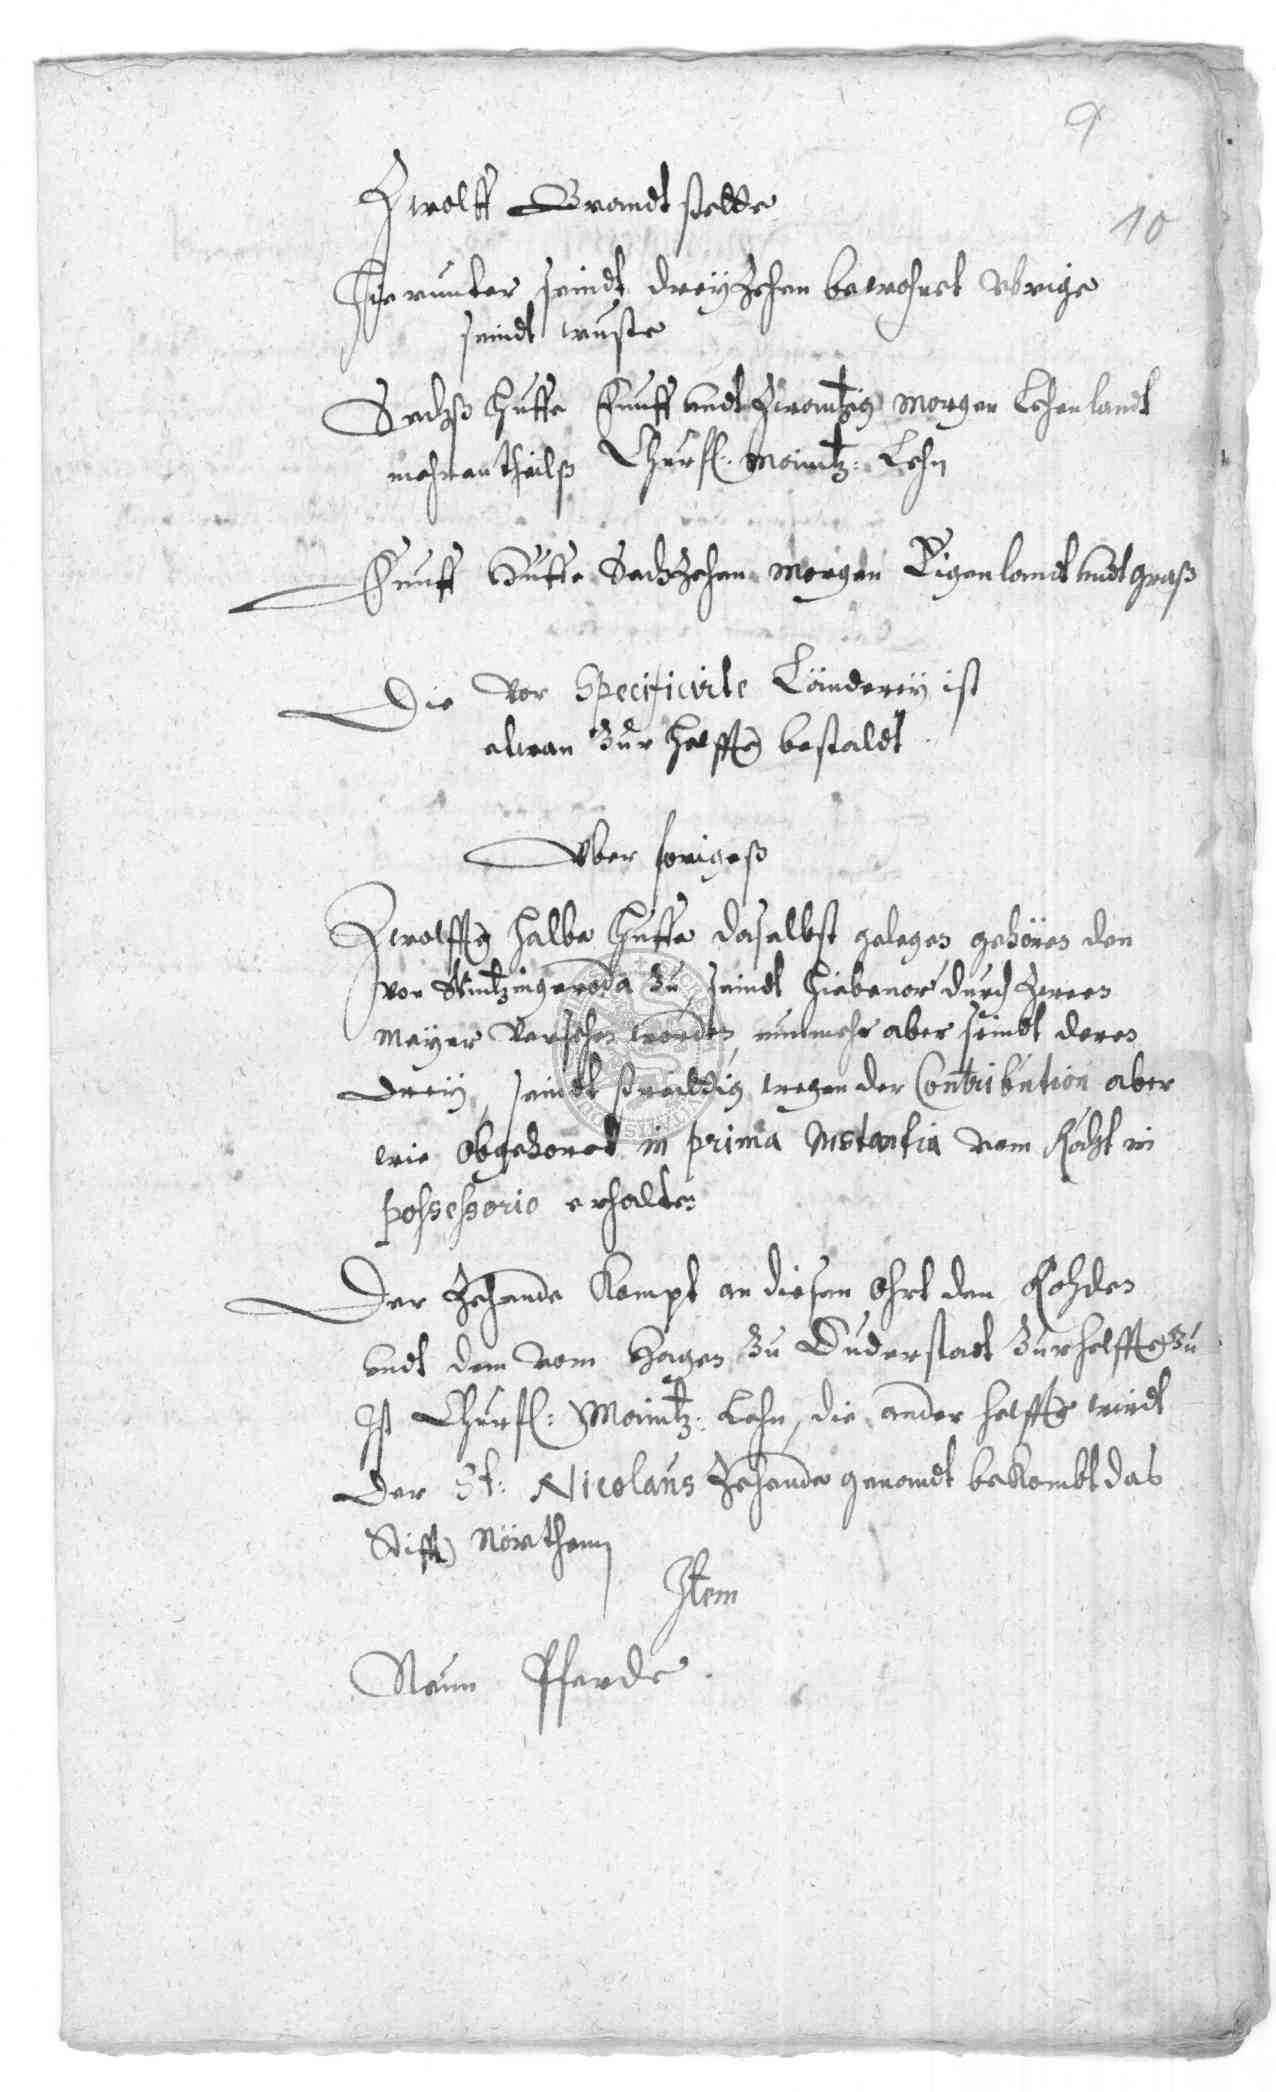 9
10
Zwolff Brandt stette
Hierunter seindt dreyzehen bewohnet vbrige
seindt wuste
Sechß Huffe Funff undt Zwantzig Morgen Lehenlandt
mehrentheilß Churfl. Maintz: Lehn
Funff Huffe Sechzehen Morgen Eigenlandt undt graß
Die vor Specificirte Länderey ist
etwan Zur helffte bestaldt
Vber foriges
Zwolffte halbe Huffe daselbst gelegen gehören den
von Wintzingeroda Zu, seindt hiebevor durch Zween
Meyer versehen worden, nunmehr aber seindt deren
Drey, seindt streittig wegen der Contribution aber
wie obgehoret in prima Instantia vom Raht in
possessorio erhalten
Der Zehende Kompt an diesen Ohrt den Rohden
undt dem vom Hagen Zu Duderstadt Zur helffte Zu
Ist Churfl: Maintz: Lehn, die ander helffte wirdt
Der St: Nicolaus Zehende genandt bekombt das
Stifft Nörthenn
Item
Neun Pferde